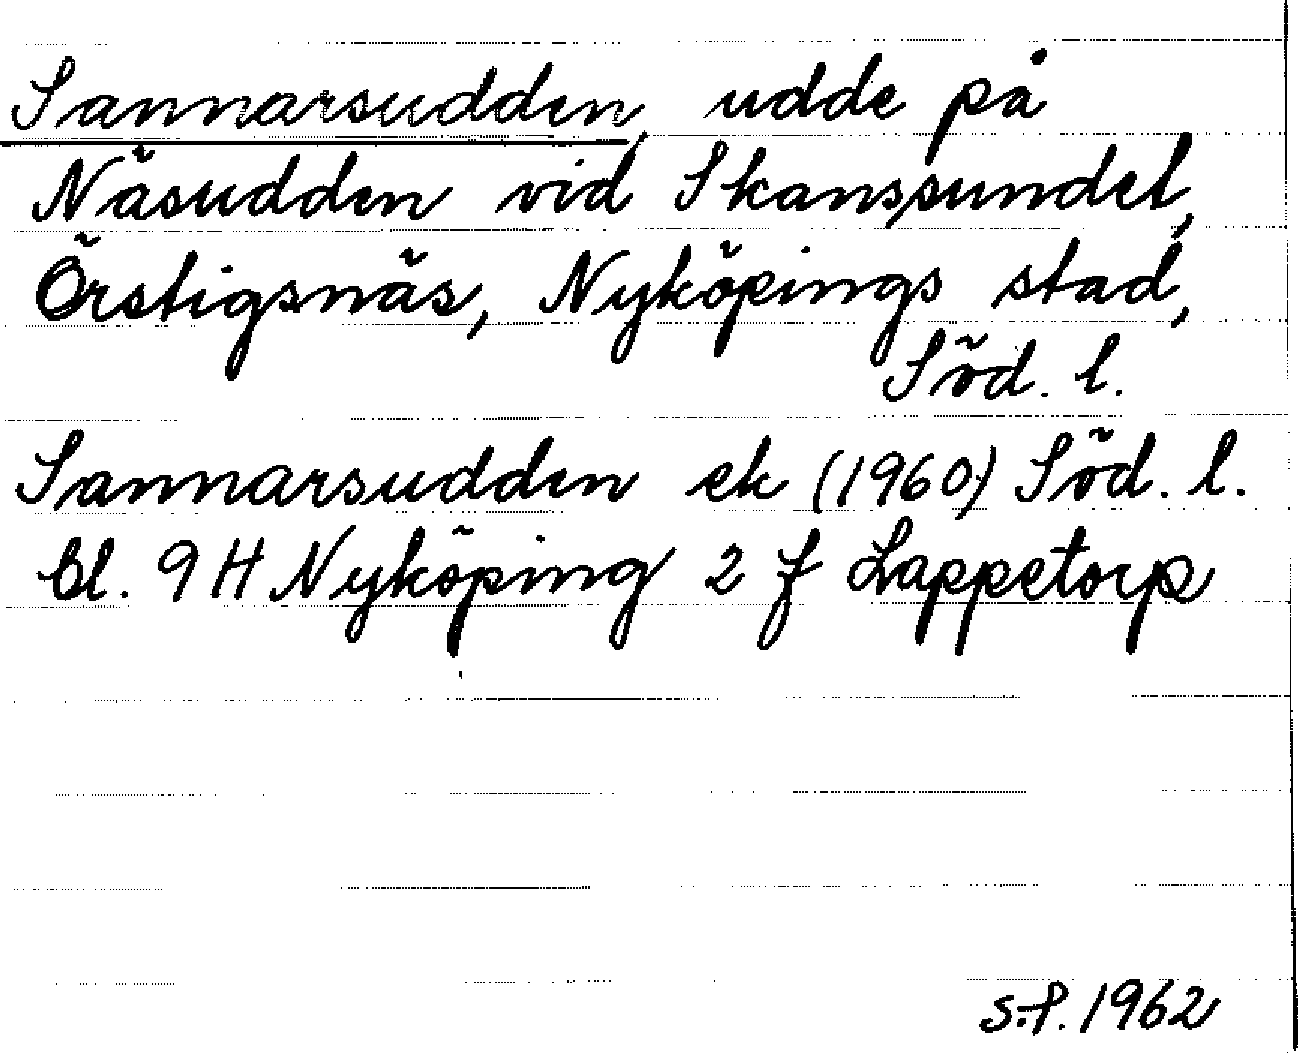 Sannarsudden, udde på
Näsudden vid Skanssundet,
Örstigsnäs, Nyköpings stad,
Söd. l.
Sannarsudden ek (1960) Söd. l.
bl. 9 H Nyköping 2 f Lappetorp
S.P. 1962